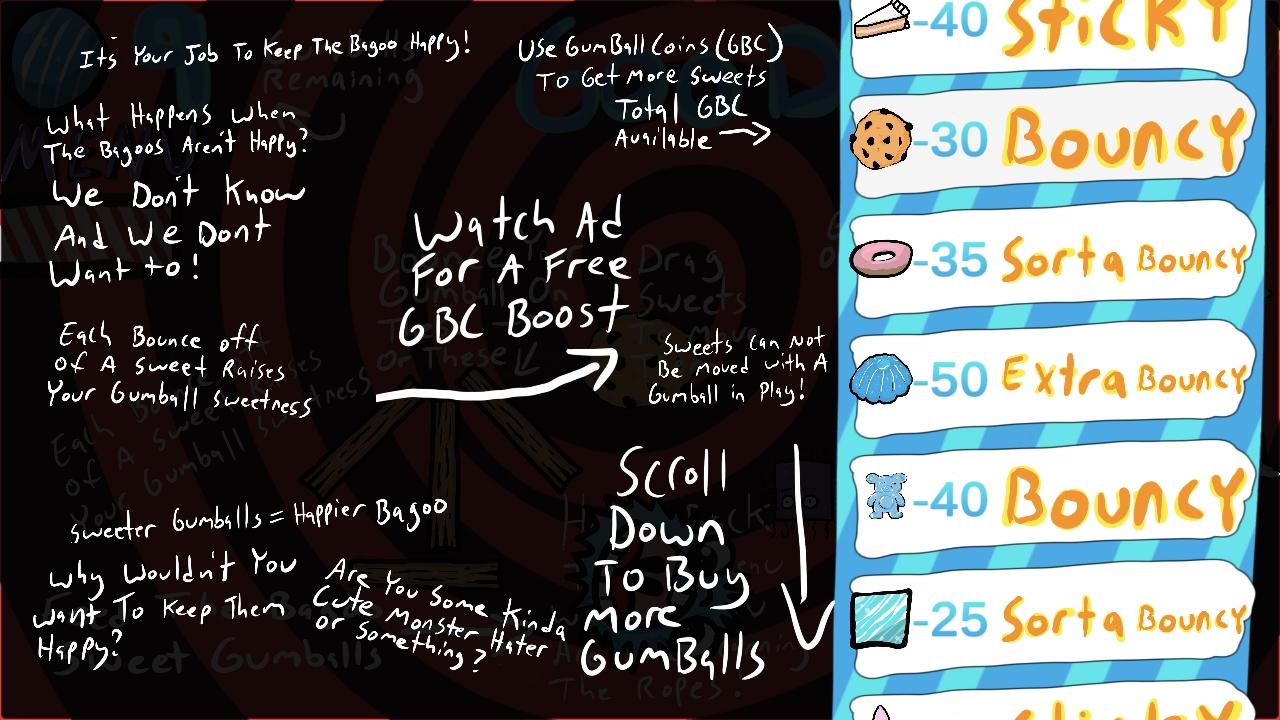 It's Your Job To Keep The Bagoo Happy!
What Happens when
The Bagoos Aren't Happy?
We Don't Know
And We Dont
Want to!
Each Bounce off
of A Sweet Raises
Your Gumball Sweetness
Sweeter Gumballs = Happier Bagoo
Why Wouldn't You
Want To Keep Them
Happy?
Are You Some Kinda
Cute Monster Hater
or Something?
Use GumBall Coins (GBC)
To Get More Sweets
Total GBC
Available
Watch Ad
For A Free
GBC Boost
Sweets Can Not
Be Moved with A
Gumball in Play!
Scroll
Down
To Buy
more
GumBalls
Remaining
MENU
GOOD
Drag
Sweets
Gumball On
Or These
Each Bounce
of A Sweet
Your Gumball Sweetness
Sweet Gumballs
The Ropes!
-40 Sticky
-30 Bouncy
-35 Sorta Bouncy
-50 Extra Bouncy
-40 Bouncy
-25 Sorta Bouncy
Sticky